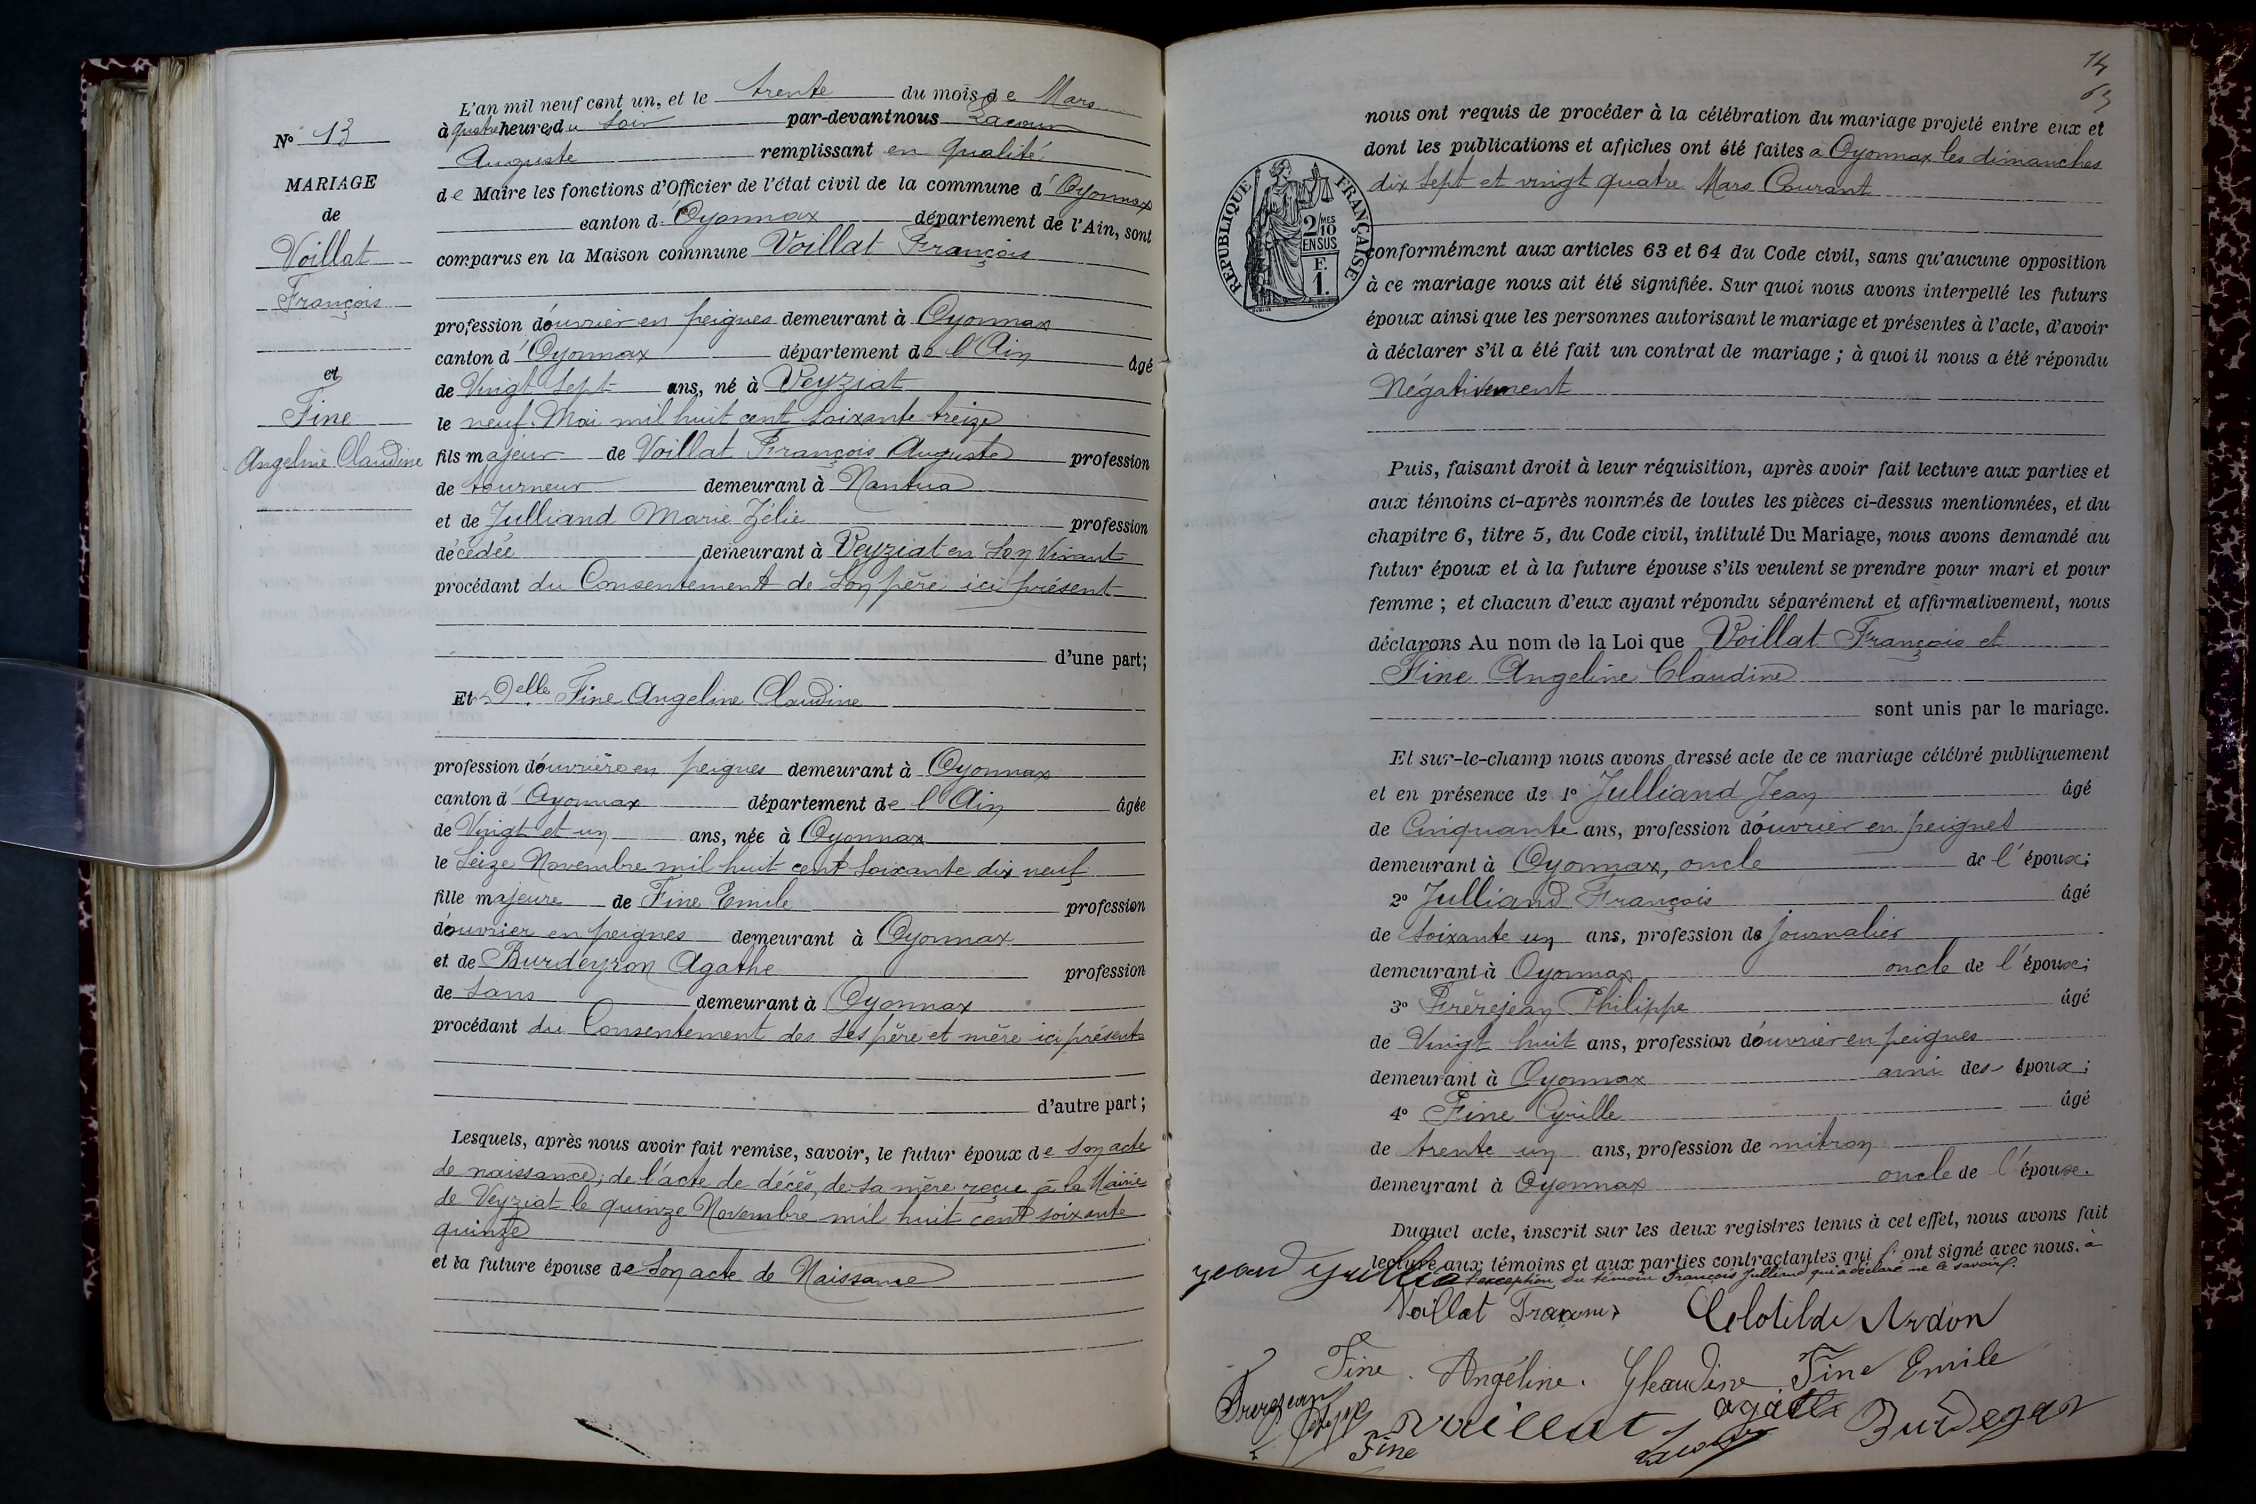 N° 13
MARIAGE
de
Voillat
François
et
Fine
Angeline Claudine
L'an mil neuf cent un, et le trente du mois de Mars
à quatre heures du soir par-devant nous Lacour
Auguste remplissant en qualité
de Maire les fonctions d'Officier de l'état civil de la commune d'Oyonnax
canton d'Oyonnax département de l'Ain, sont
comparus en la Maison commune Voillat François
profession d'ouvrier en peignes demeurant à Oyonnax
canton d'Oyonnax département de l'Ain âgé
de Vingt sept ans, né à Veyziat
le neuf Mai mil huit cent soixante treize
fils majeur de Voillat François Auguste profession
de tourneur demeurant à Nantua
et de Julliand Marie Zélie profession
décédée demeurant à Veyziat en son vivant
procédant du Consentement de son père ici présent
d'une part;
Et Delle Fine Angeline Claudine
profession d'ouvrière en peignes demeurant à Oyonnax
canton d'Oyonnax département de l'Ain âgée
de Vingt et un ans, née à Oyonnax
le seize Novembre mil huit cent soixante dix neuf
fille majeure de Fine Emile profession
d'ouvrier en peignes demeurant à Oyonnax
et de Burdeyron Agathe profession
de sans demeurant à Oyonnax
procédant du Consentement des ses père et mère ici présents
d'autre part;
Lesquels, après nous avoir fait remise, savoir, le futur époux de son acte
de naissance; de l'acte de décès, de sa mère reçu à la Mairie
de Veyziat le quinze Novembre mil huit cent soixante
quinze
et la future épouse de son acte de Naissance
14
63
nous ont requis de procéder à la célébration du mariage projeté entre eux et
dont les publications et affiches ont été faites à Oyonnax les dimanches
dix sept et vingt quatre Mars Courant
REPUBLIQUE FRANÇAISE
2/10 MES
EN SUS
F.
1.
conformément aux articles 63 et 64 du Code civil, sans qu'aucune opposition
à ce mariage nous ait été signifiée. Sur quoi nous avons interpellé les futurs
époux ainsi que les personnes autorisant le mariage et présentes à l'acte, d'avoir
à déclarer s'il a été fait un contrat de mariage; à quoi il nous a été répondu
Négativement
Puis, faisant droit à leur réquisition, après avoir fait lecture aux parties et
aux témoins ci-après nommés de toutes les pièces ci-dessus mentionnées, et du
chapitre 6, titre 5, du Code civil, intitulé Du Mariage, nous avons demandé au
futur époux et à la future épouse s'ils veulent se prendre pour mari et pour
femme; et chacun d'eux ayant répondu séparément et affirmativement, nous
déclarons Au nom de la Loi que Voillat François et
Fine Angeline Claudine
sont unis par le mariage.
Et sur-le-champ nous avons dressé acte de ce mariage célébré publiquement
et en présence de 1° Julliand Jean âgé
de Cinquante ans, profession d'ouvrier en peignes
demeurant à Oyonnax, oncle de l'époux;
2° Julliand François âgé
de soixante un ans, profession de journalier
demeurant à Oyonnax oncle de l'époux;
3° Frèrejean Philippe âgé
de Vingt huit ans, profession d'ouvrier en peignes
demeurant à Oyonnax ami des époux;
4° Fine Cyrille âgé
de trente un ans, profession de mitron
demeurant à Oyonnax oncle de l'épouse.
Duquel acte, inscrit sur les deux registres tenus à cet effet, nous avons fait
lecture aux témoins et aux parties contractantes qui l'ont signé avec nous. à
l'exception du témoin François Julliand qui a déclaré ne le savoir.
Voillat François Clotilde Ardon
Fine Angéline Glaudine Fine Emile
Frerejean
Voillat agathe Burdeyron
Fine Lacour